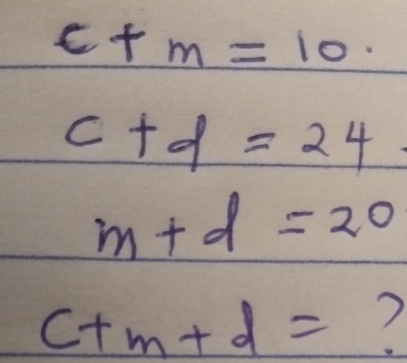 c + m = 10.
c + d = 24.
m + d = 20
c + m + d = ?